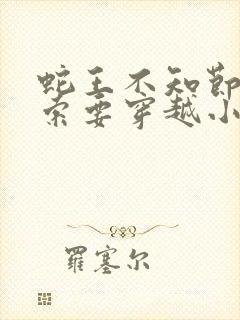 蛇王不知节
索要穿越小
羅塞尔